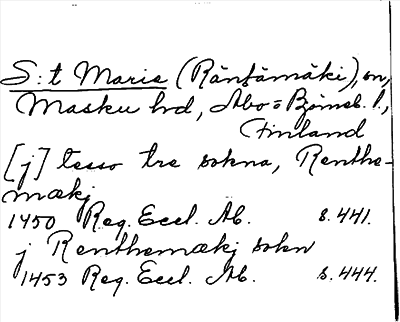 S:t Marie (Räntämäki), sn,
Masku hd, Åbo = Björneb. l.,
Finland
[j] tesso tre sokna, Renthe-
mækj
1450 Reg. Eccl. Ab. s. 441.
j Renthemækj sokn
1453 Reg. Eccl. Ab. s. 444.